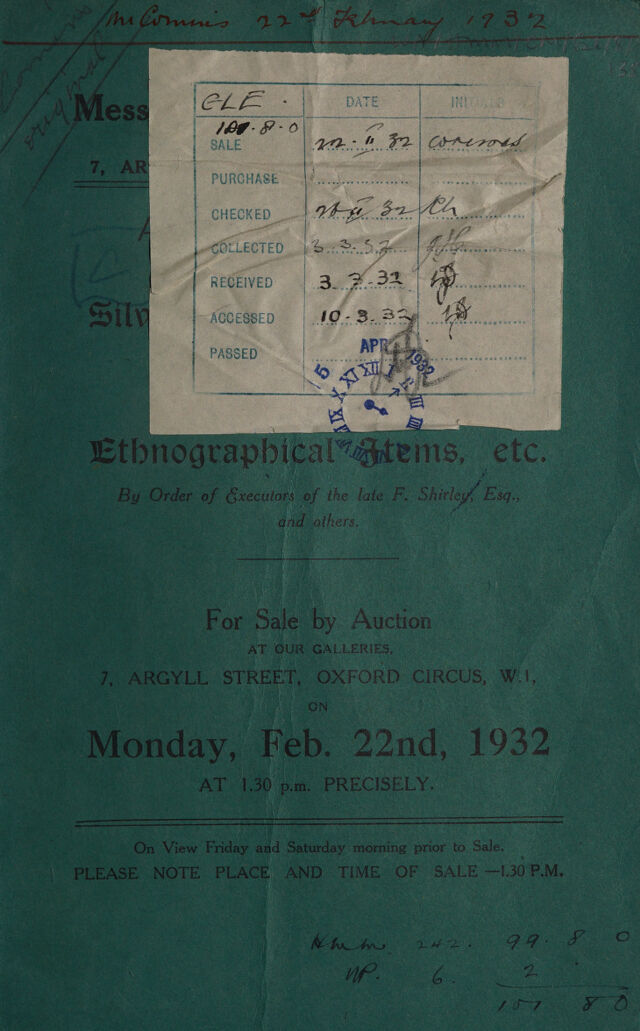 22nd February 1932
original
Mess
GLE.
DATE
101.8.0
SALE 22.II 32
7, AR
PURCHASE
CHECKED
COLLECTED 3.3.32
RECEIVED 3.3.32
Silv
ACCESSED 10.3.32
PASSED
5 APR 1932
Ethnographical Items, etc.
By Order of Executors of the late F. Shirley, Esq.,
and others.
For Sale by Auction
AT OUR GALLERIES,
7, ARGYLL STREET, OXFORD CIRCUS, W.1,
ON
Monday, Feb. 22nd, 1932
AT 1.30 p.m. PRECISELY.
On View Friday and Saturday morning prior to Sale.
PLEASE NOTE PLACE AND TIME OF SALE—1.30 P.M.
242. 99. 8 0
6. 2
101 8 0